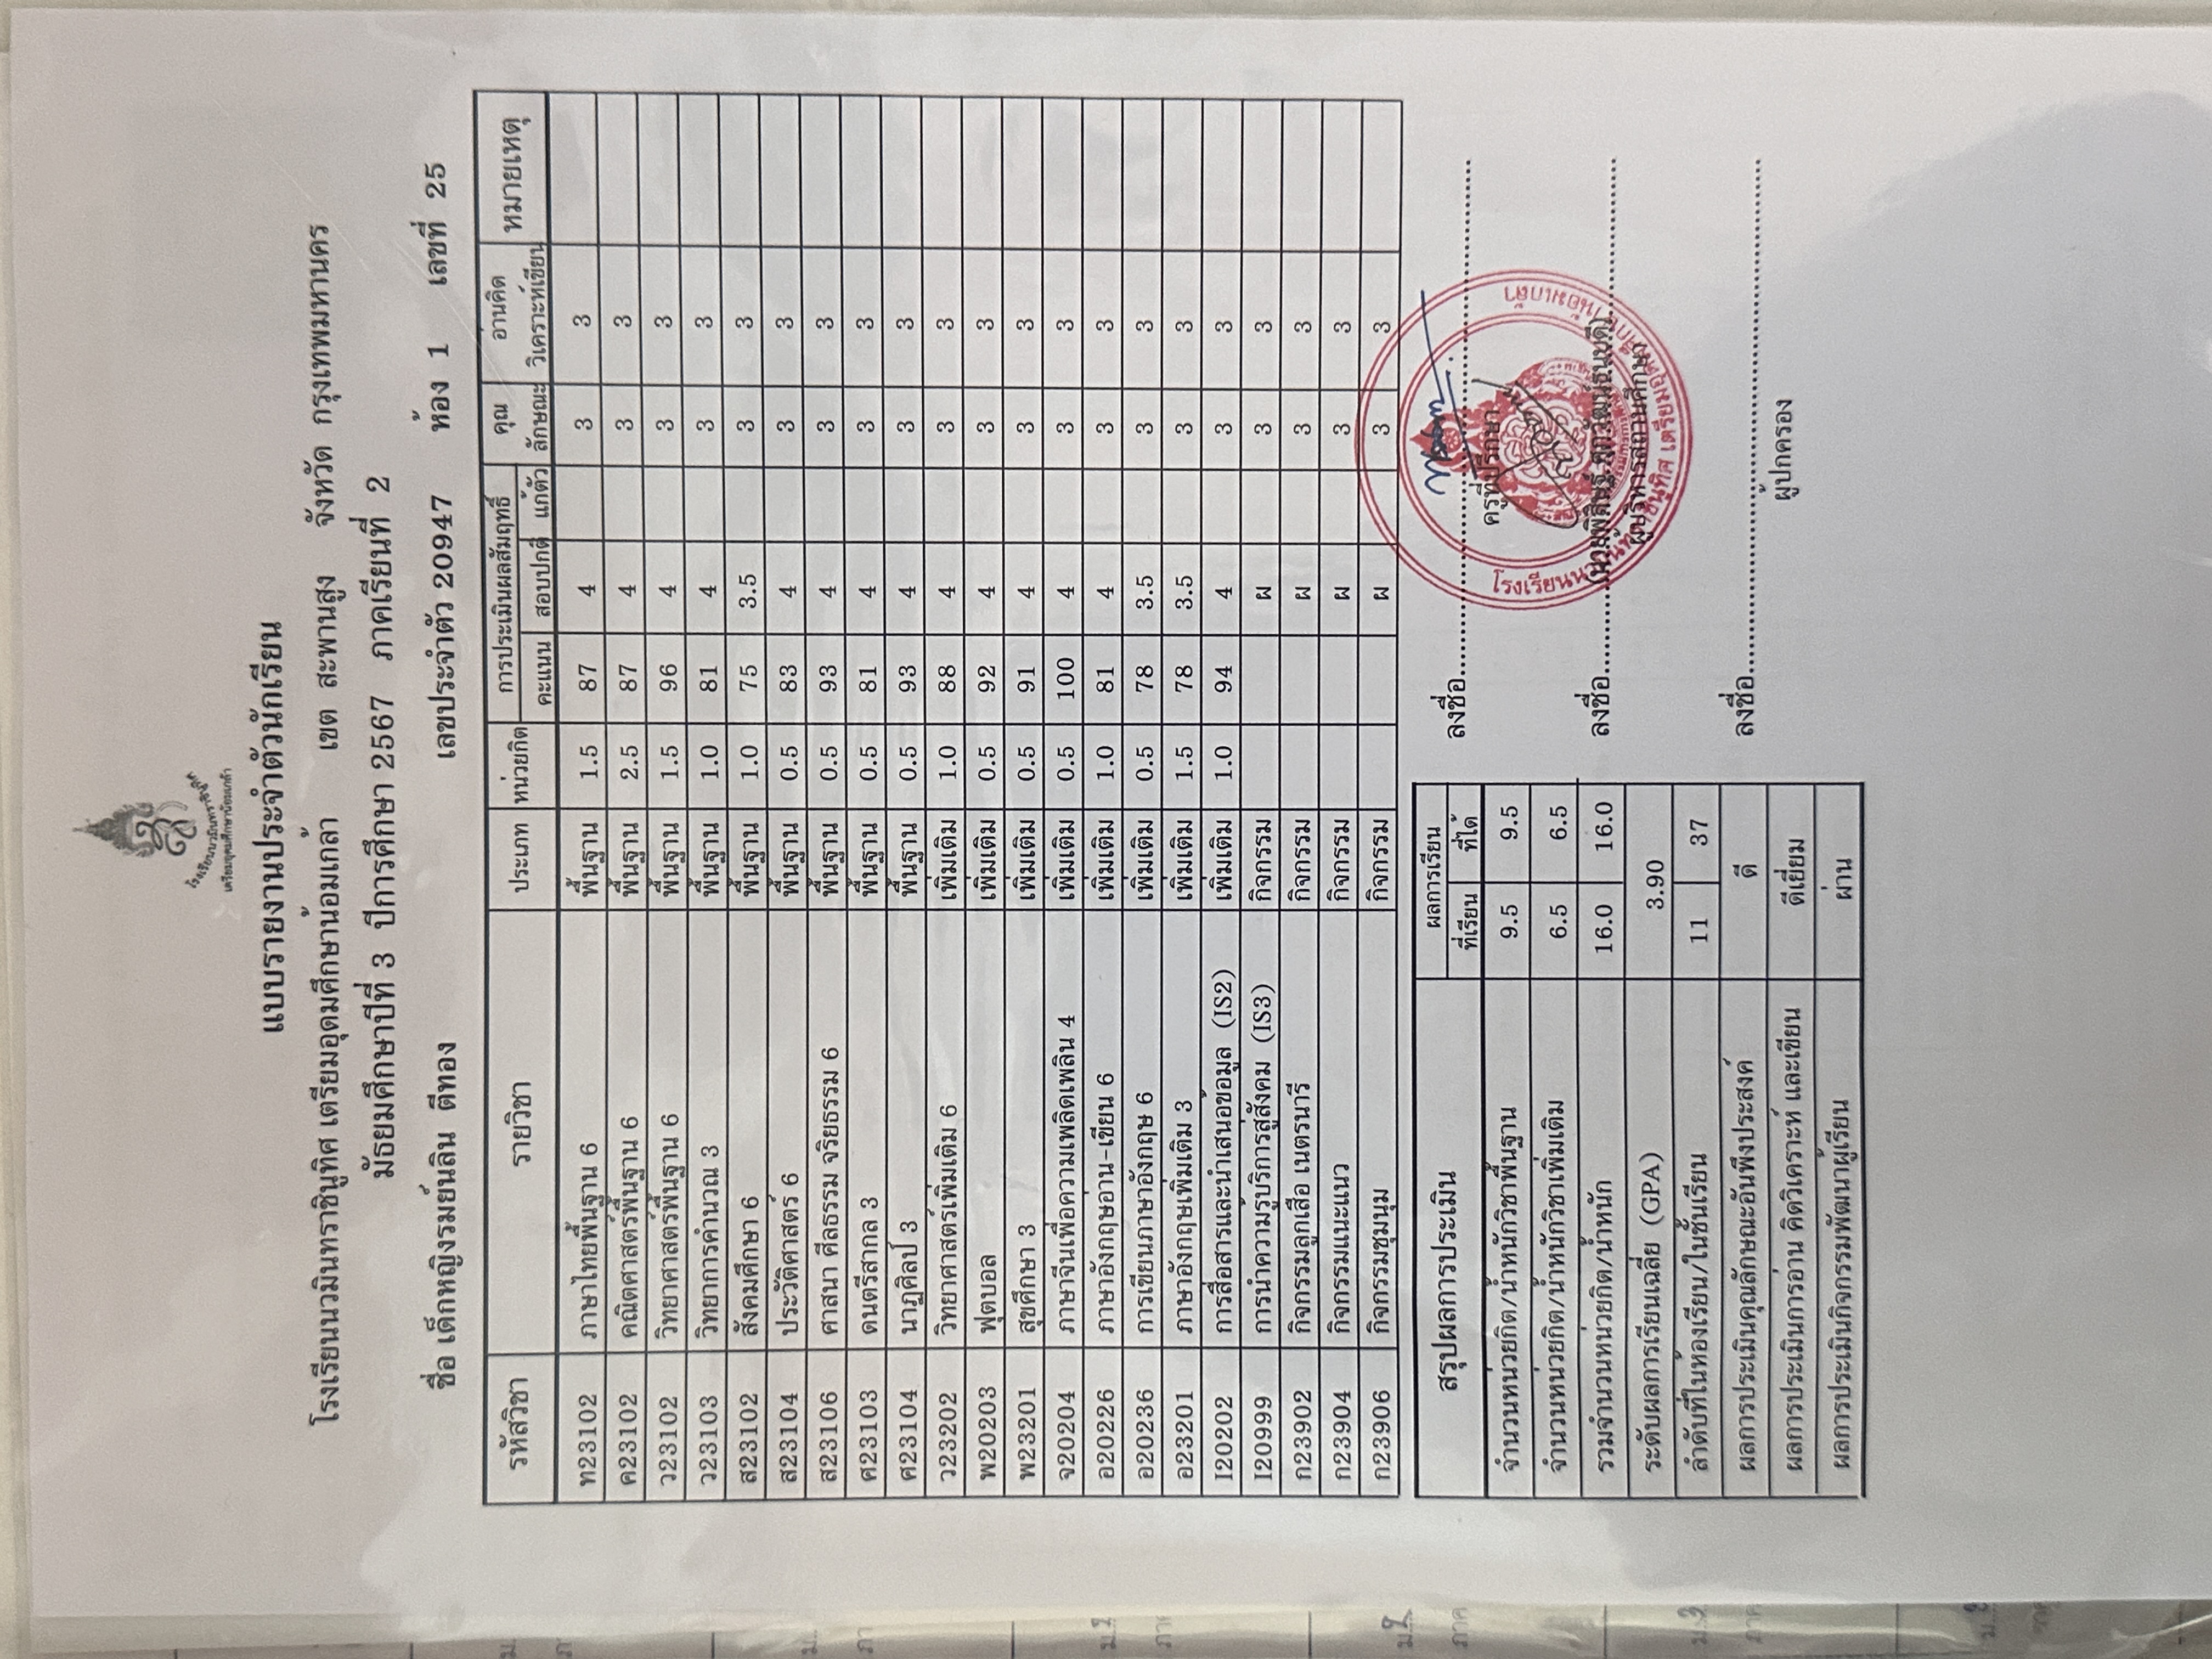 โรงเรียนนวมินทราชินูทิศ
เตรียมอุดมศึกษาน้อมเกล้า
แบบรายงานประจำตัวนักเรียน
โรงเรียนนวมินทราชินูทิศ เตรียมอุดมศึกษาน้อมเกล้า เขต สะพานสูง จังหวัด กรุงเทพมหานคร
มัธยมศึกษาปีที่ 3 ปีการศึกษา 2567 ภาคเรียนที่ 2
ชื่อ เด็กหญิงรมย์นลิน ดีทอง เลขประจำตัว 20947 ห้อง 1 เลขที่ 25
รหัสวิชา รายวิชา ประเภท หน่วยกิต การประเมินผลสัมฤทธิ์ คุณ อ่านคิด หมายเหตุ
คะแนน สอบปกติ แก้ตัว ลักษณะ วิเคราะห์เขียน
ท23102 ภาษาไทยพื้นฐาน 6 พื้นฐาน 1.5 87 4 3 3
ค23102 คณิตศาสตร์พื้นฐาน 6 พื้นฐาน 2.5 87 4 3 3
ว23102 วิทยาศาสตร์พื้นฐาน 6 พื้นฐาน 1.5 96 4 3 3
ว23103 วิทยาการคำนวณ 3 พื้นฐาน 1.0 81 4 3 3
ส23102 สังคมศึกษา 6 พื้นฐาน 1.0 75 3.5 3 3
ส23104 ประวัติศาสตร์ 6 พื้นฐาน 0.5 83 4 3 3
ส23106 ศาสนา ศีลธรรม จริยธรรม 6 พื้นฐาน 0.5 93 4 3 3
ศ23103 ดนตรีสากล 3 พื้นฐาน 0.5 81 4 3 3
ศ23104 นาฏศิลป์ 3 พื้นฐาน 0.5 93 4 3 3
ว23202 วิทยาศาสตร์เพิ่มเติม 6 เพิ่มเติม 1.0 88 4 3 3
พ20203 ฟุตบอล เพิ่มเติม 0.5 92 4 3 3
พ23201 สุขศึกษา 3 เพิ่มเติม 0.5 91 4 3 3
จ20204 ภาษาจีนเพื่อความเพลิดเพลิน 4 เพิ่มเติม 0.5 100 4 3 3
อ20226 ภาษาอังกฤษอ่าน-เขียน 6 เพิ่มเติม 1.0 81 4 3 3
อ20236 การเขียนภาษาอังกฤษ 6 เพิ่มเติม 0.5 78 3.5 3 3
อ23201 ภาษาอังกฤษเพิ่มเติม 3 เพิ่มเติม 1.5 78 3.5 3 3
I20202 การสื่อสารและนำเสนอข้อมูล (IS2) เพิ่มเติม 1.0 94 4 3 3
I20999 การนำความรู้บริการสู่สังคม (IS3) กิจกรรม ผ 3 3
ก23902 กิจกรรมลูกเสือ เนตรนารี กิจกรรม ผ 3 3
ก23904 กิจกรรมแนะแนว กิจกรรม ผ 3 3
ก23906 กิจกรรมชุมนุม กิจกรรม ผ 3 3
สรุปผลการประเมิน ผลการเรียน
ที่เรียน ที่ได้
จำนวนหน่วยกิต/น้ำหนักวิชาพื้นฐาน 9.5 9.5
จำนวนหน่วยกิต/น้ำหนักวิชาเพิ่มเติม 6.5 6.5
รวมจำนวนหน่วยกิต/น้ำหนัก 16.0 16.0
ระดับผลการเรียนเฉลี่ย (GPA) 3.90
ลำดับที่ในห้องเรียน/ในชั้นเรียน 11 37
ผลการประเมินคุณลักษณะอันพึงประสงค์ ดี
ผลการประเมินการอ่าน คิดวิเคราะห์ และเขียน ดีเยี่ยม
ผลการประเมินกิจกรรมพัฒนาผู้เรียน ผ่าน
ลงชื่อ
ครูที่ปรึกษา
ลงชื่อ
ผู้บริหารสถานศึกษา
ลงชื่อ
ผู้ปกครอง